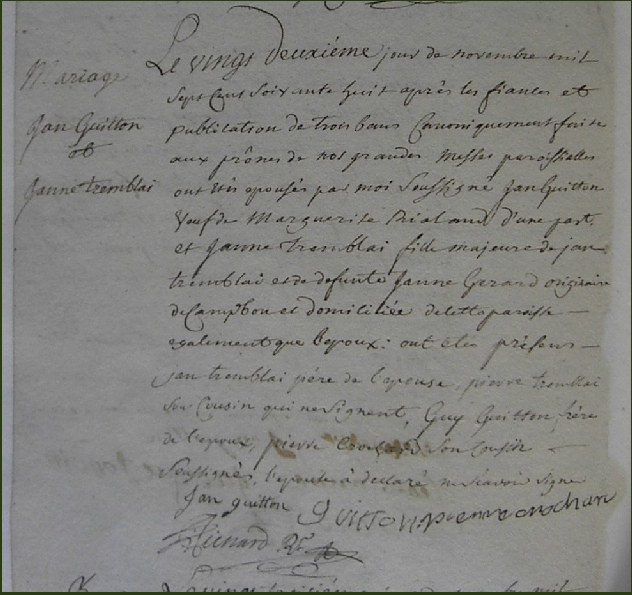 Mariage
Jan Guitton
et
Janne tremblai
Le vingt deuxiéme jour de novembre mil
sept Cent soixante huit après les fiances et
publication de trois bans Canoniquement faite
aux prônes de nos grandes Messes paroissialles
ont étés epousés par moi Soussigné Jan Guitton
Veuf de Marguerite Rialand d'une part,
et Janne Tremblai fille majeure de jan
tremblai et de defunte Janne Gerard originaire
de Campbon et domiciliée de cette paroisse —
egalement que l'epoux: ont étés présens —
jan tremblai pére de l'epouse, pierre tremblai
son Cousin qui ne signent, Guy Guitton frére
de l'epoux, pierre son Cousin —
Soussignés, l'epouse à declaré ne scavoir signe
Jan guitton guitton pierre